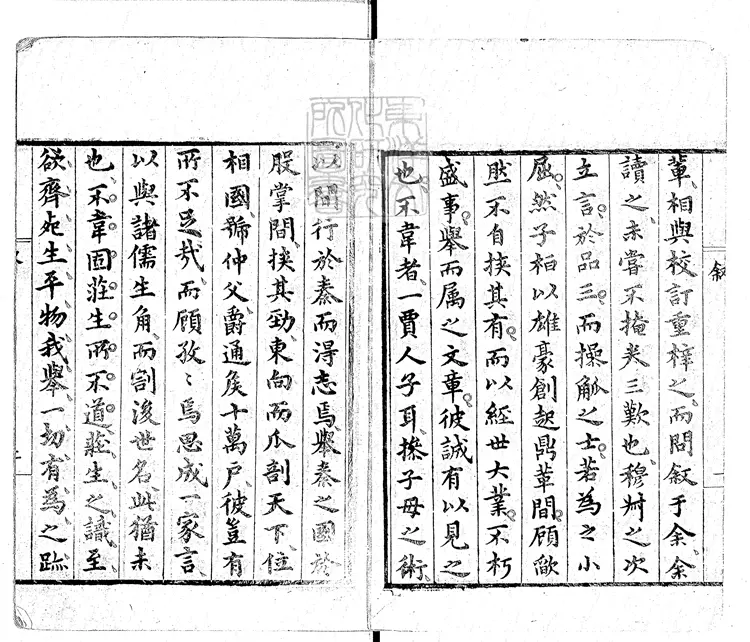 輩相與校訂重梓之而問叙于余余
讀之未嘗不掩卷三歎也穆叔之次
立言於品三而操觚之士若為之小
屈然子桓以雄豪創起鼎革間顧歐
然不自挾其有而以經世大業不朽
盛事舉而属之文章彼誠有以見之
也不韋者一賈人子耳操子母之術
以間行於秦而得志焉舉秦之國於
股掌間挾其勁東向而爪剖天下位
相國號仲父爵通矦十萬戶彼豈有
所不足哉而顧孜〻焉思成一家言
以與諸儒生角而割後世名此猶未
也不韋固莊生所不道莊生之識至
欲齊死生平物我舉一切有為之跡
叙